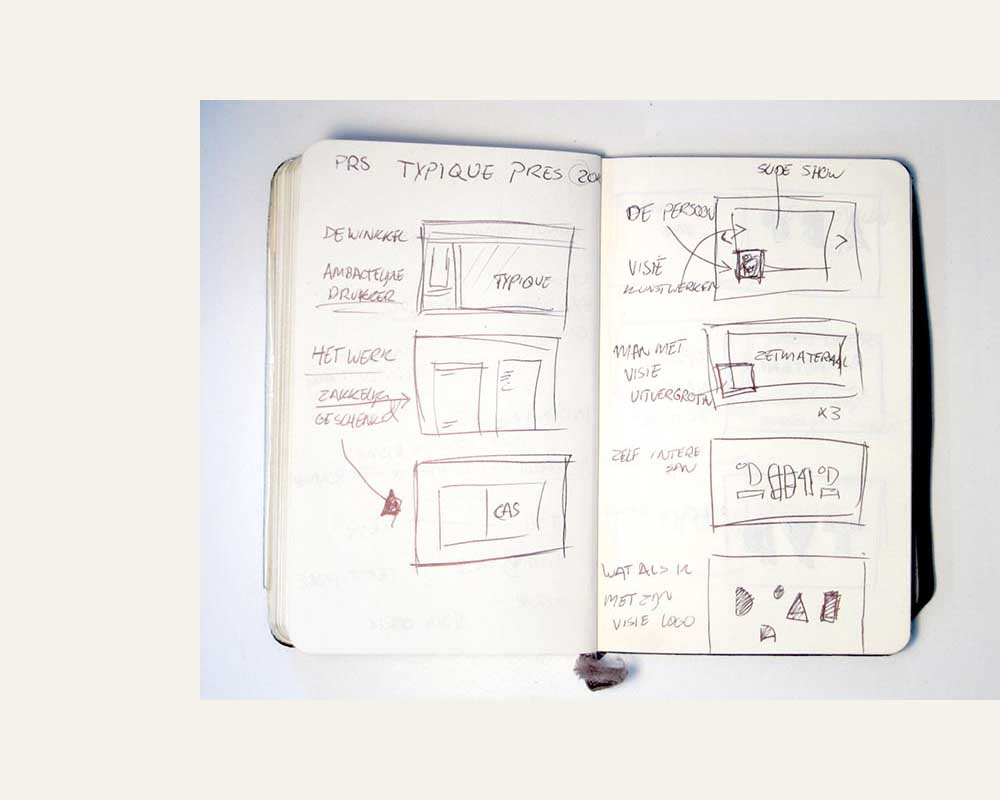 PRS TYPIQUE PRES
DE WINKEL
AMBACTELIJKE
DRUKKER
TYPIQUE
HET WERK
ZAKKELIJK
GESCHENK
CAS
SLIDE SHOW
DE PERSOON
VISIE
KUNSTWERKEN
MAN MET
VISIE
UITVERGROTN
ZETMATERIAAL
X3
ZELF INTERE
SAN
WAT ALS IK
MET ZIJN
VISIE LOGO